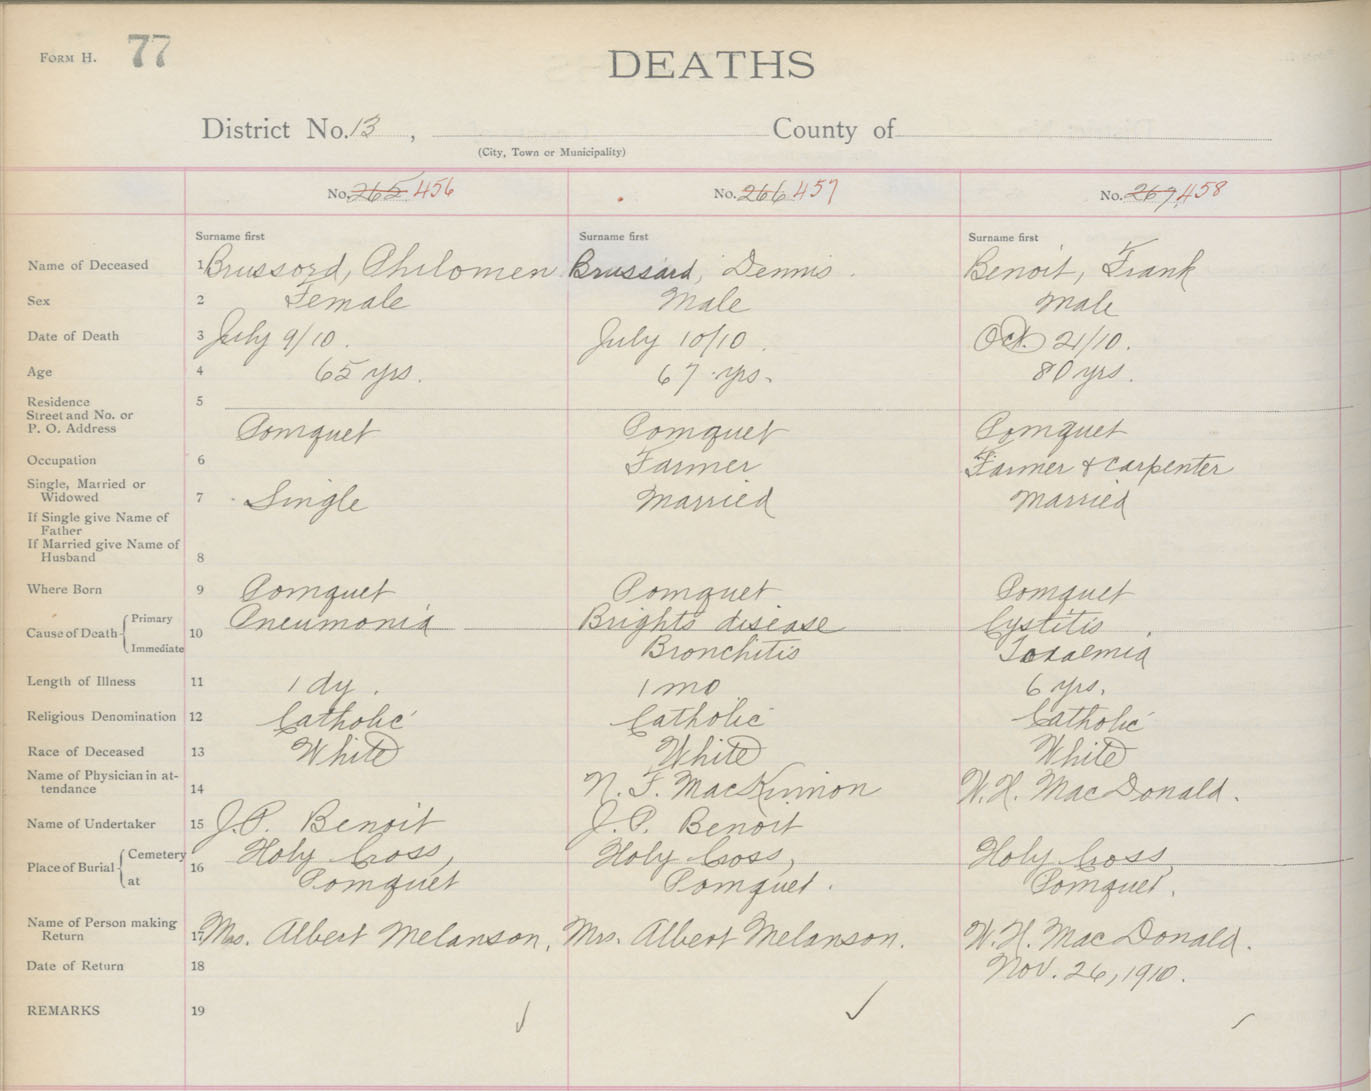 FORM H. 77
DEATHS
District No. 13 , County of
(City, Town or Municipality)
No. 265 456 No. 266 457 No. 267 458
Surname first Surname first Surname first
Name of Deceased 1 Brussord, Philomen Brussard, Dennis Benoit, Frank
Sex 2 Female Male Male
Date of Death 3 July 9/10. July 10/10. Oct. 21/10.
Age 4 65 yrs. 67 yrs. 80 yrs.
Residence 5
Street and No. or
P. O. Address Pomquet Pomquet Pomquet
Occupation 6 Farmer Farmer & carpenter
Single, Married or
Widowed 7 Single Married Married
If Single give Name of
Father
If Married give Name of
Husband 8
Where Born 9 Pomquet Pomquet Pomquet
Cause of Death 10 Primary Pneumonia Brights disease Cystitis
Immediate Bronchitis Toxaemia
Length of Illness 11 1 dy. 1 mo 6 yrs.
Religious Denomination 12 Catholic Catholic Catholic
Race of Deceased 13 White White White
Name of Physician in at-
tendance 14 N. F. MacKinnon W. H. MacDonald.
Name of Undertaker 15 J. P. Benoit J. P. Benoit
Place of Burial 16 Cemetery Holy Cross, Holy Cross, Holy Cross,
at Pomquet Pomquet. Pomquet.
Name of Person making
Return 17 Mrs. Albert Melanson, Mrs. Albert Melanson. W. H. MacDonald.
Date of Return 18 Nov. 26, 1910.
REMARKS 19